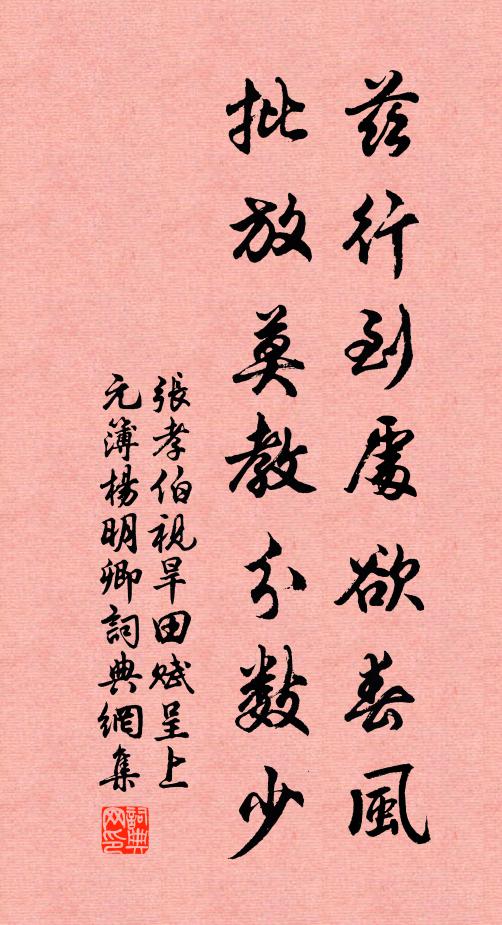 茲行到處欲春風
批放莫教分數少
張孝伯視旱田賦呈上
元簿楊明卿詞典網集
詞典
网印